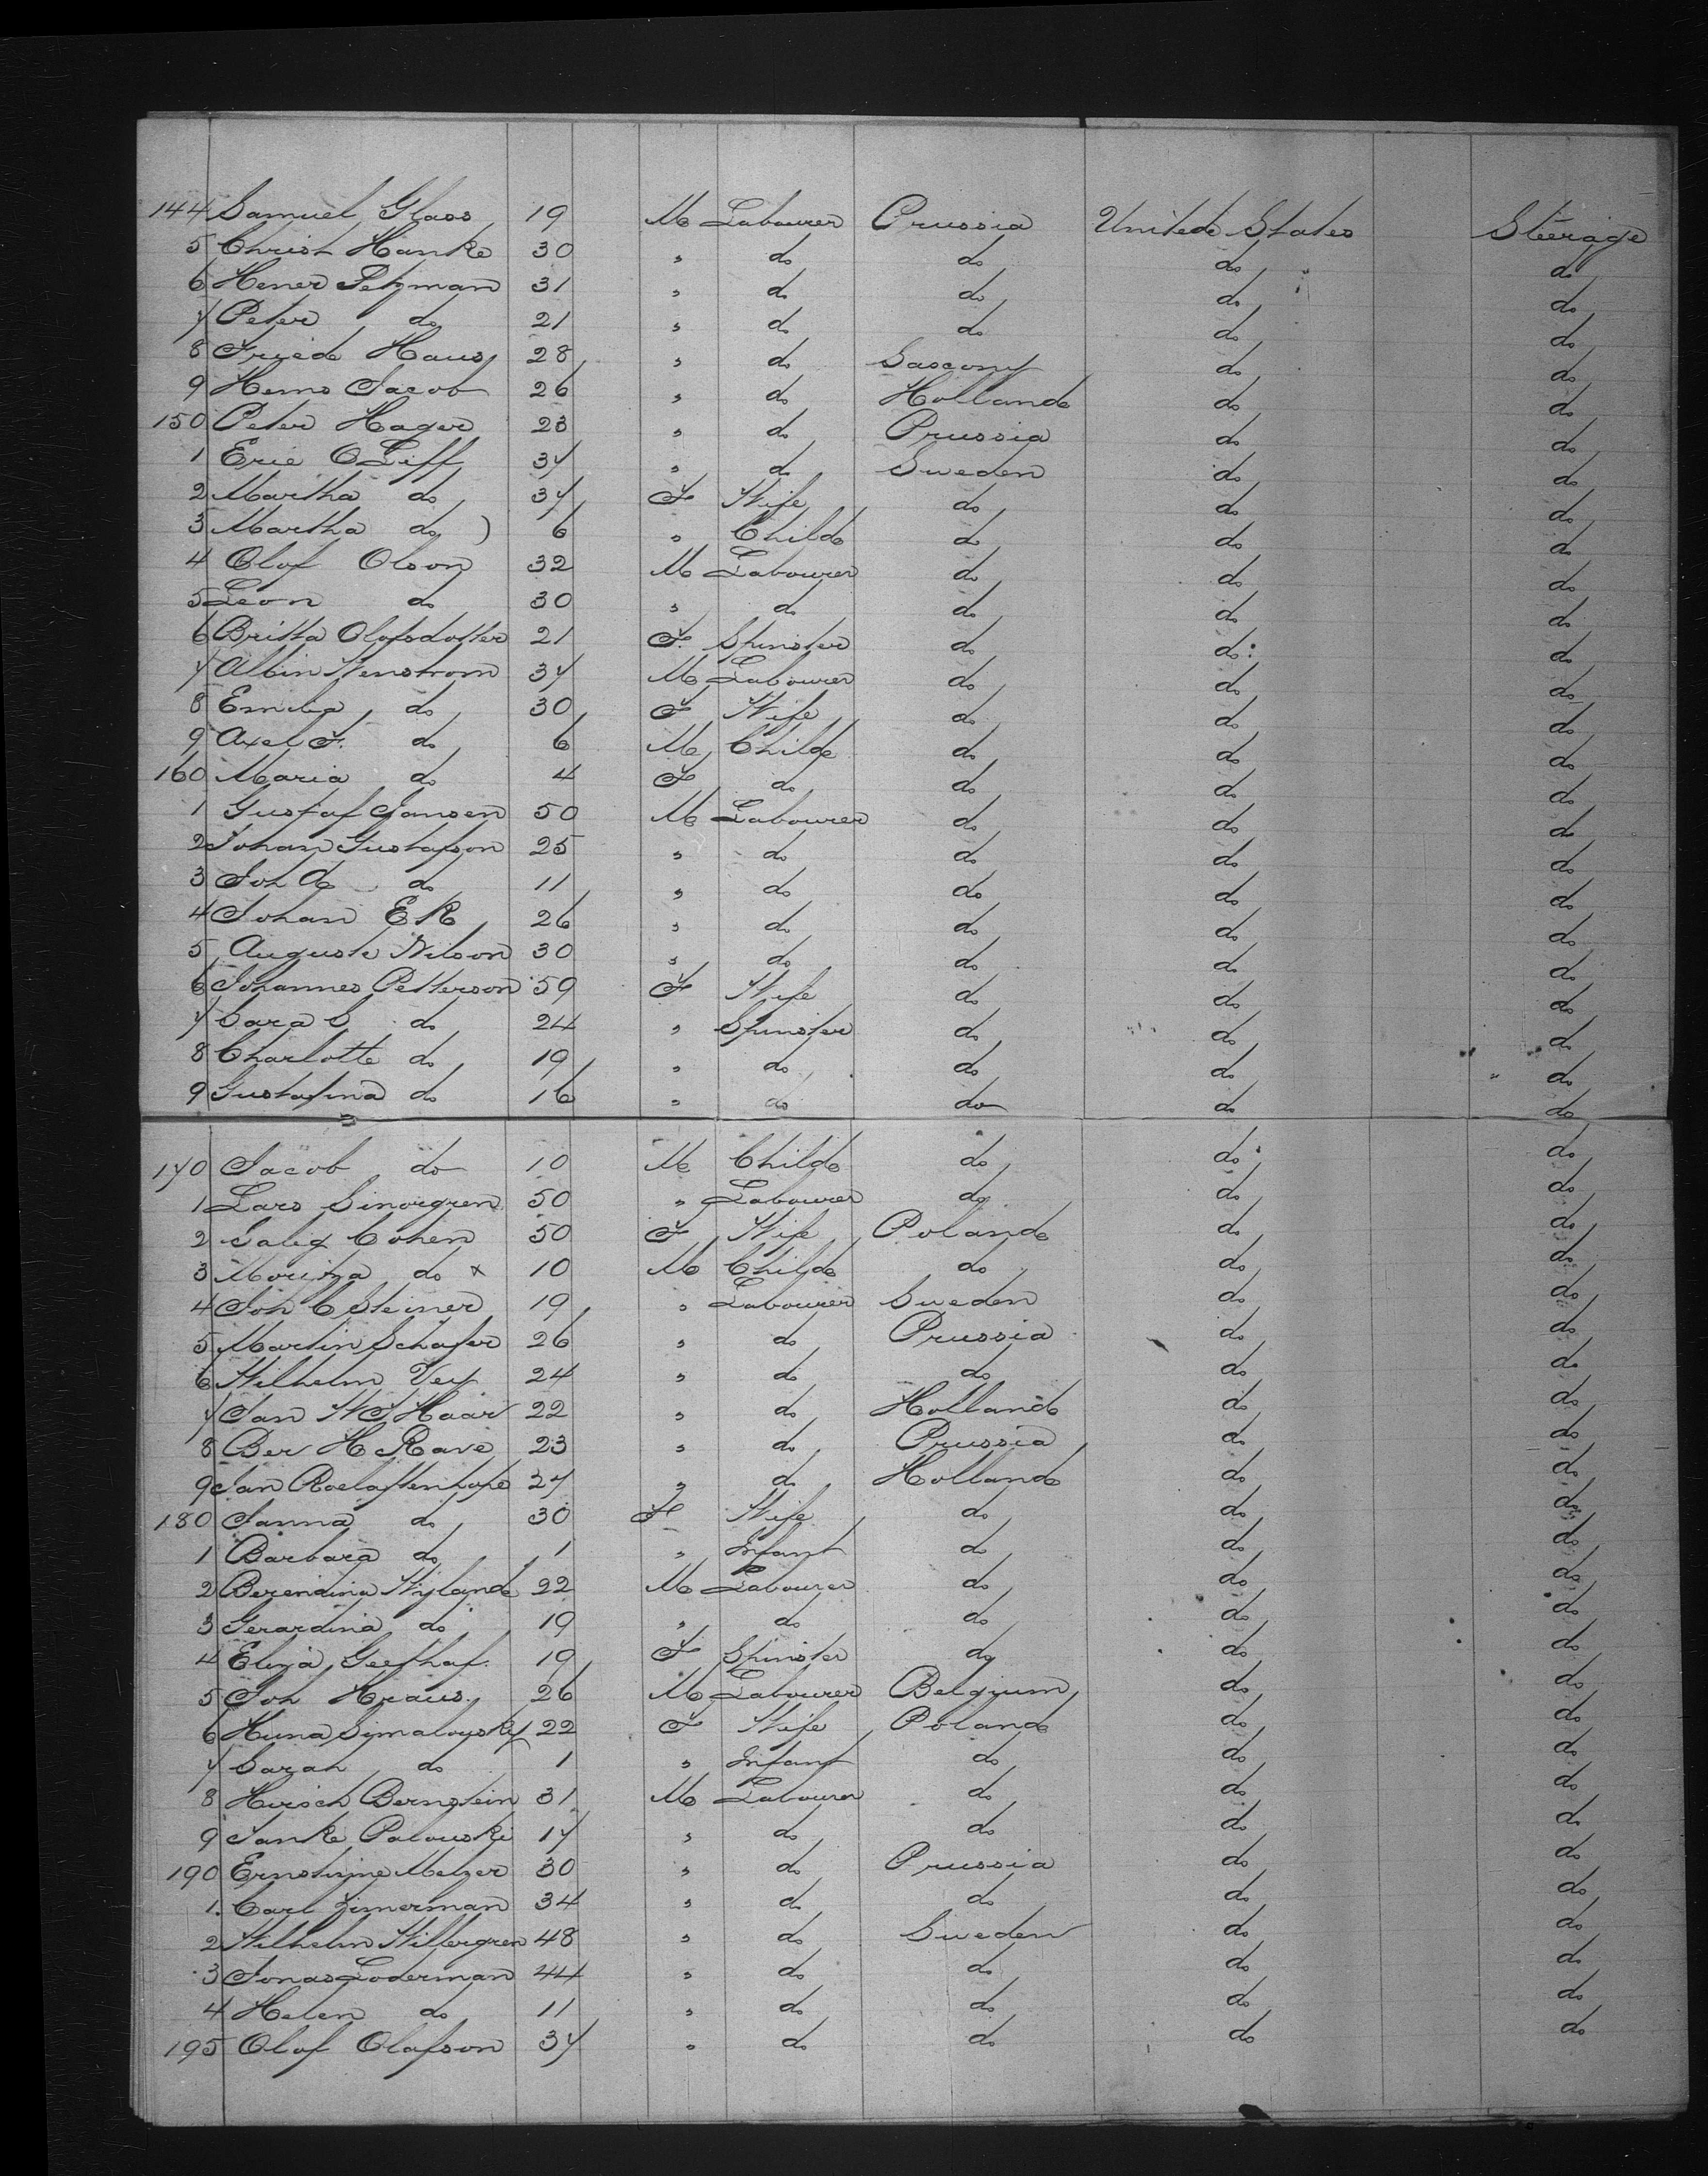 144 Samuel Glass 19 M Labourer Prussia United States Steerage
5 Christ Hanke 30 " do do do do
6 Hener Petzman 31 " do do do do
7 Peter do 21 " do do do do
8 Friede Haus 28 " do Sascony do do
9 Hems Jacob 26 " do Holland do do
150 Peter Hager 23 " do Prussia do do
1 Eric OLiff 37 " do Sweden do do
2 Martha do 37 F Wife do do do
3 Martha do 6 " Child do do do
4 Olof Olson 32 M Labourer do do do
5 Leon do 30 " do do do do
6 Britta Olofsdotter 21 F. Spinster do do do
7 Albin Wenstrom 37 M Labourer do do do
8 Emilia do 30 F Wife do do do
9 Axel F. do 6 M Child do do do
160 Maria do 4 F do do do do
1 Gustaf Jansen 50 M Labourer do do do
2 Johan Gustafson 25 " do do do do
3 Joh A do 11 " do do do do
4 Johan E R 26 " do do do do
5 August Nilson 30 " do do do do
6 Johannes Petterson 59 F Wife do do do
7 Sara S do 24 " Spinster do do do
8 Charlotte do 19 " do do do do
9 Gustafina do 16 " do do do do
170 Jacob do 10 M Child do do do
1 Lars Sinorgren 50 " Labourer do do do
2 Salig Cohen 50 F Wife Poland do do
3 Moritza do x 10 M Child do do do
4 Joh C Steiner 19 " Labourer Sweden do do
5 Martin Schafer 26 " do Prussia do do
6 Wilhelm Vey 24 " do do do do
7 Jan W J Haar 22 " do Holland do do
8 Ber H Rave 23 " do Prussia do do
9 Jan 27 " do Holland do do
180 Janna do 30 F Wife do do do
1 Barbara do 1 " Infant do do do
2 Berendina Wyland 22 M Labourer do do do
3 Gerardina do 19 " do do do do
4 Eliza Geefhaf. 19 F Spinster do do do
5 Joh Kraus. 26 M Labourer Belgium do do
6 Huna 22 F Wife Poland do do
7 Sarah do 1 " Infant do do do
8 Hirsch Bernstein 31 M Labourer do do do
9 Janke Palouski 17 " do do do do
190 Ernstine Melzer 30 " do Prussia do do
1. Carl Zimerman 34 " do do do do
2 Wilhelm Willergren 48 " do Sweden do do
3 Jonas Loderman 44 " do do do do
4 Helen do 11 " do do do do
195 Olof Olafson 37 " do do do do